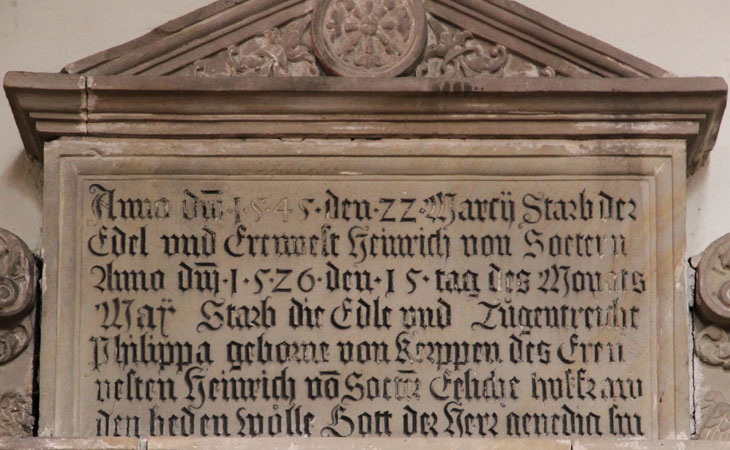 Anno dm̄ · 1 · 5 · 4 5 · den · 22 · Marcij Starb der
Edel vnd Erenvest Heinrich von Soetern
Anno dm̄ · 1 · 5 2 6 · den · 1 5 · tag des Monats
Maÿ Starb die Edle vnd Tugentreiche
Philippa geborne von Kerppen des Eren
vesten Heinrich vō Soetr̄ Eeliche hußfraw
den beden wolle Gott der Herr genedig sin